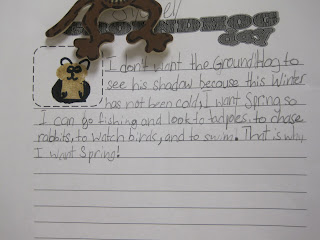 GROUNDHOG
day
I don't want the GroundHog to
see his shadow because this Winter
has not been cold, I want Spring so
I can go fishing and look to tadpoles, to chase
rabbits, to watch birds, and to swim. That is why
I want Spring!